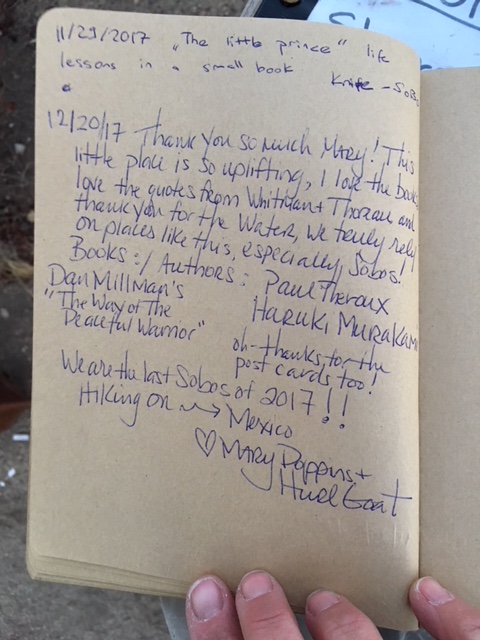 11/29/2017 „The little prince" life
lessons in a small book Knife - SoBo
12/20/17 Thank you so much Mary! This
little place is so uplifting, I love the books
love the quotes from Whitman + Thoreau and
thank you for the Water, we truly rely
on places like this, especially, Sobos!
Books :/ Authors : Paul Theroux
Dan Millman's Haruki Murakami
"The Way of The
Peaceful Warrior"
oh- thanks for the
post cards too!
We are the last Sobos of 2017!!
Hiking on → Mexico
♡ Mary Poppins +
Goat